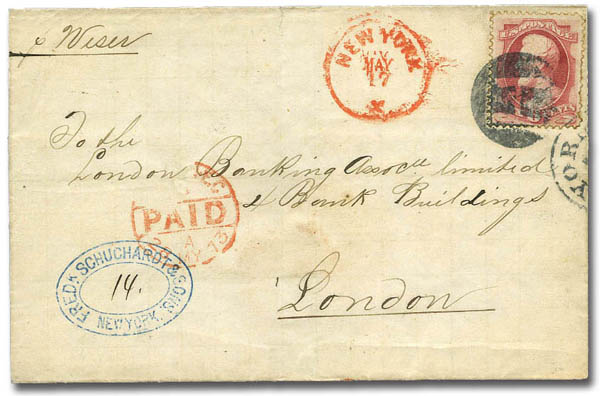 p Weser
NEW YORK
MAY
17
X
To the
London Banking Assocn. limited
4 Bank Buildings
London
PAID
MY 73
FREDK SCHUCHARDT & SONS
14.
NEW YORK.
YOR